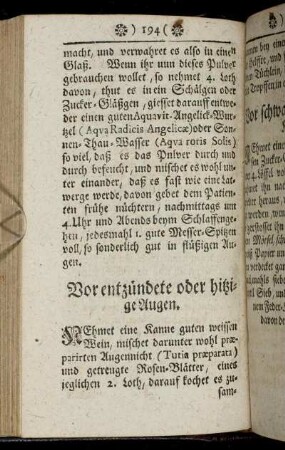 ) 194 (
macht, und verwahret es also in einem
Glaß. Wenn ihr nun dieses Pulver
gebrauchen wollet, so nehmet 4. Loth
davon, thut es in ein Schälgen oder
Zucker-Gläßgen, giesset darauff entwe-
der einen guten Aquavit-Angelick-Wur-
tzel (Aqva Radicis Angelicæ) oder Son-
nen-Thau-Wasser (Aqva roris Solis)
so viel, daß es das Pulver durch und
durch befeucht, und mischet es wohl un-
ter einander, daß es fast wie eine Lat-
werge werde, davon gebet dem Patien-
ten frühe nüchtern, nachmittags um
4. Uhr und Abends beym Schlaffenge-
hen, jedesmahl 1. gute Messer-Spitzen
voll, so sonderlich gut in flüßigen Au-
gen.
Vor entzündete oder hitzi-
ge Augen.
NEhmet eine Kanne guten weissen
Wein, mischet darunter wohl præ-
parirten Augennicht (Tutia præparata)
und getreugte Rosen-Blätter, eines
jeglichen 2. Loth, darauf kochet es zu-
sam-